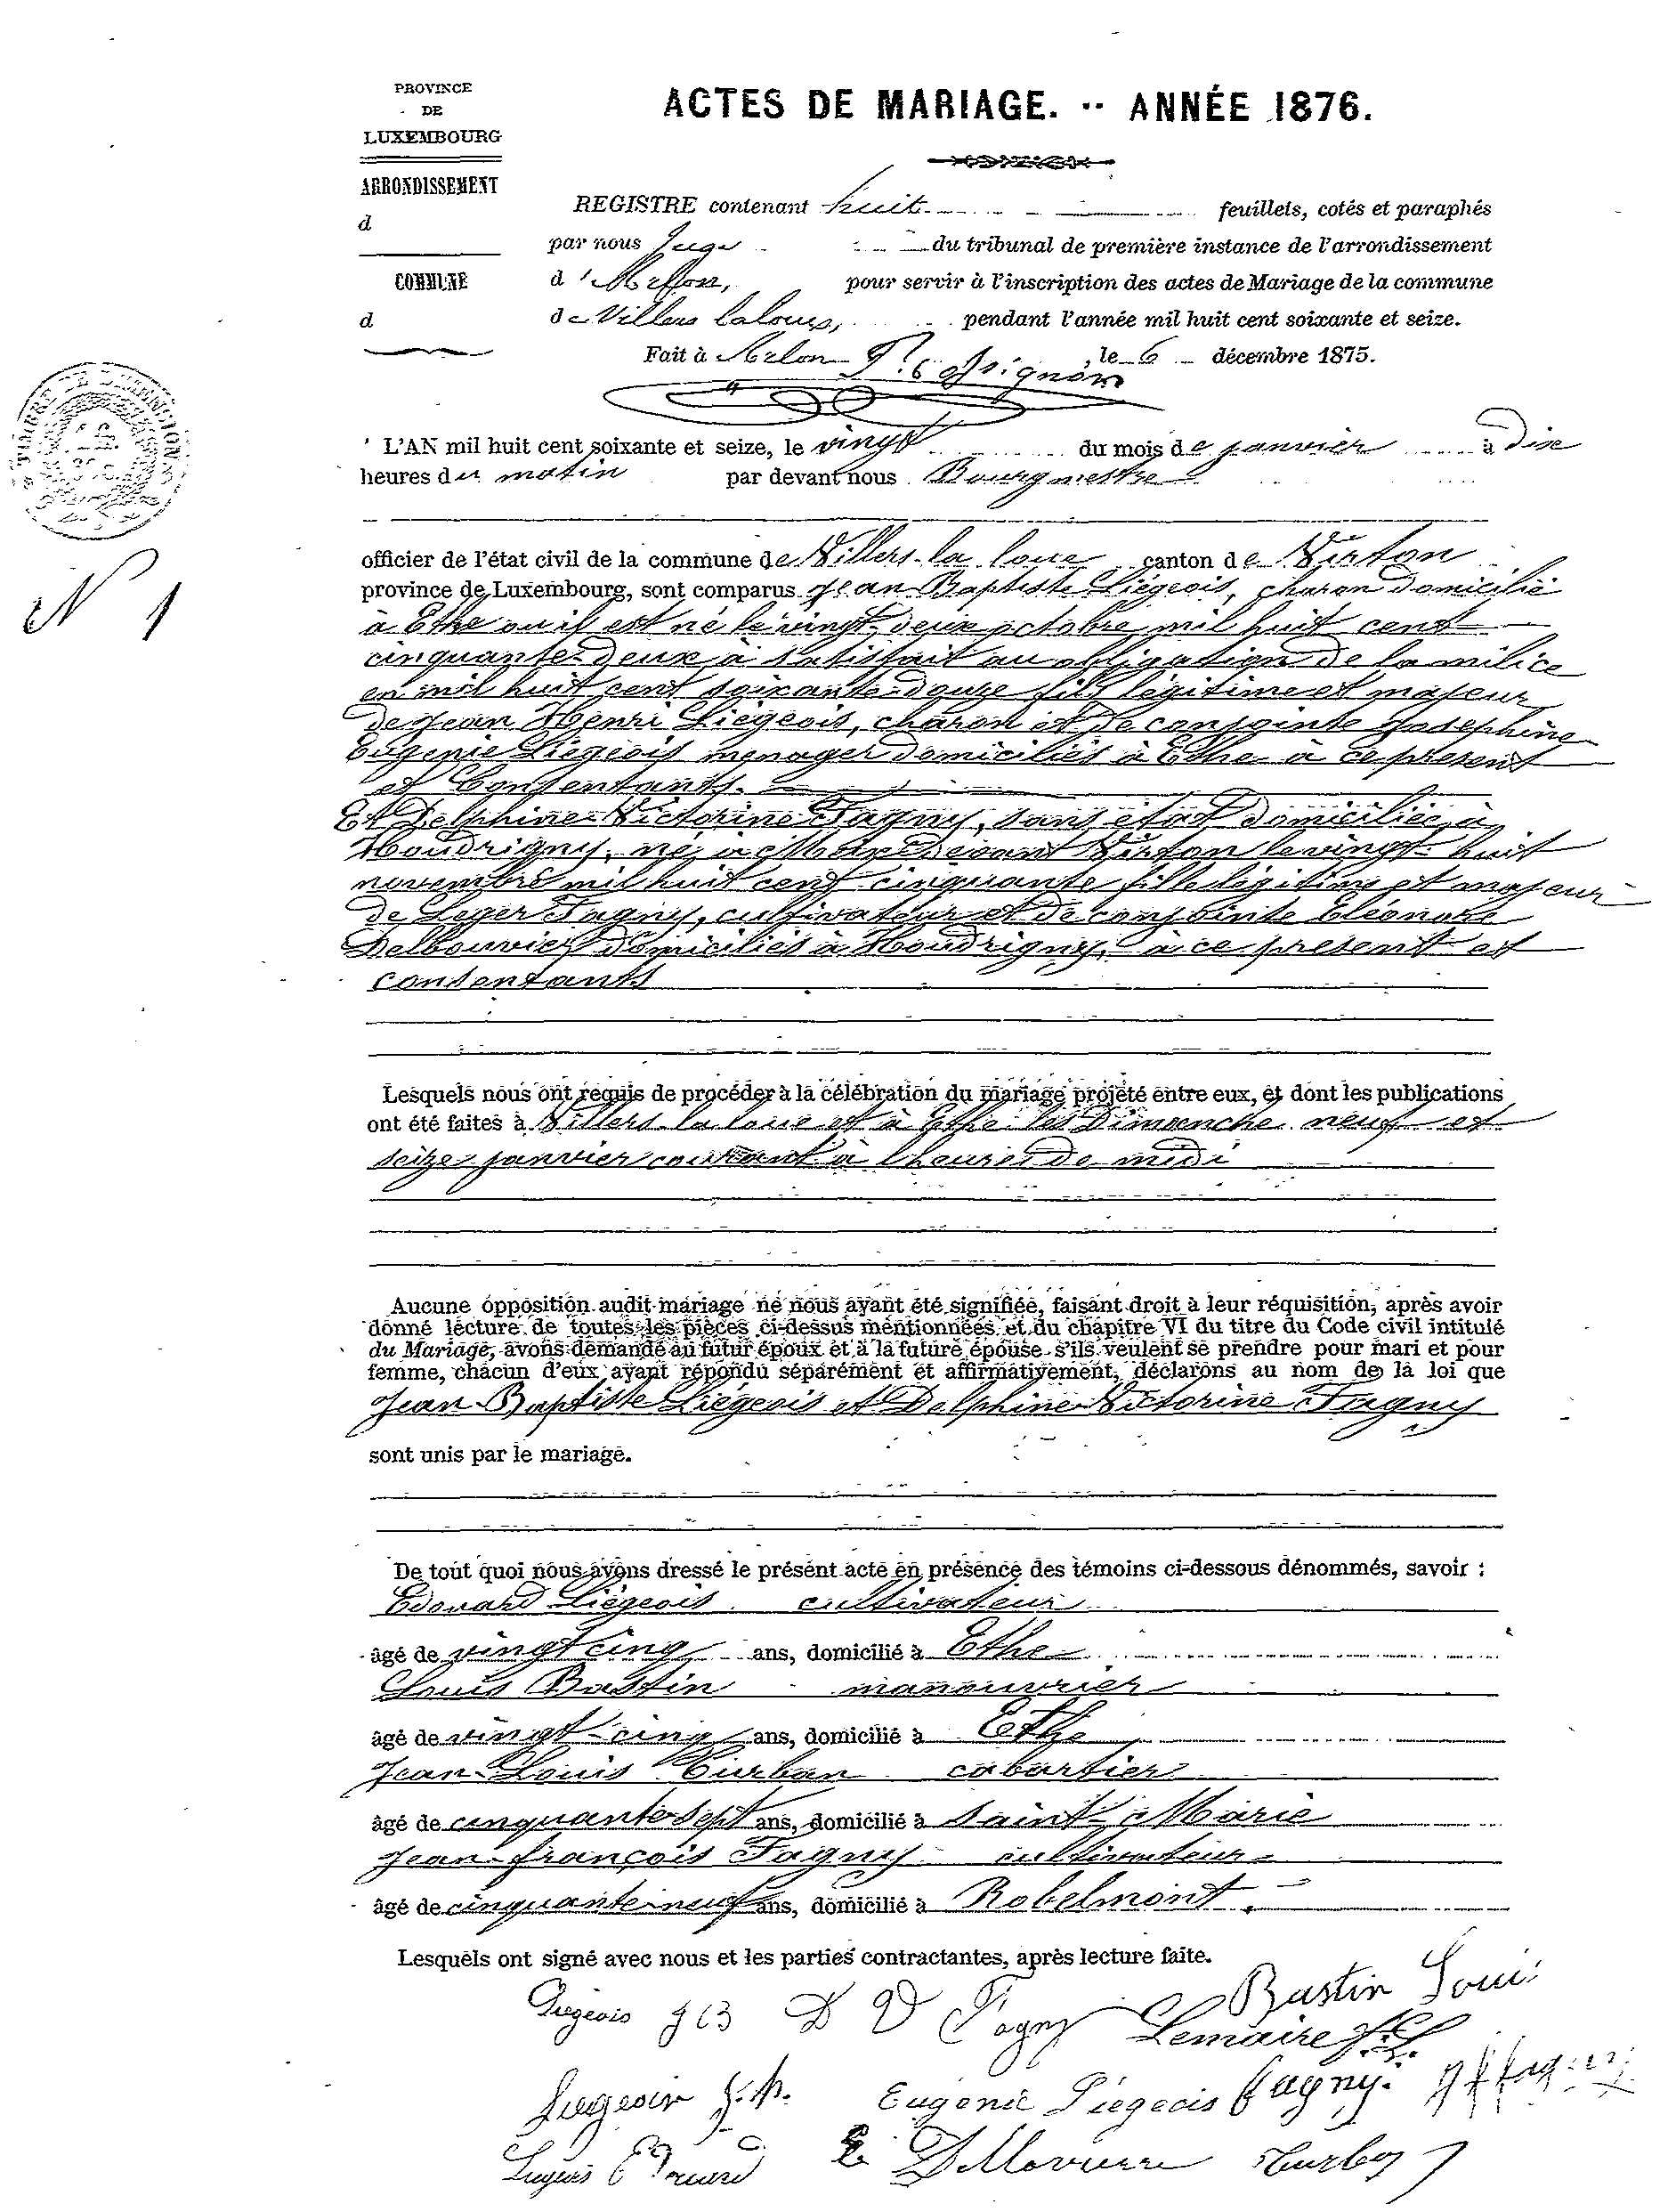 PROVINCE
DE
LUXEMBOURG
ARRONDISSEMENT
d
COMMUNE
d
ACTES DE MARIAGE. -- ANNÉE 1876.
REGISTRE contenant huit feuillets, cotés et paraphés
par nous Juge du tribunal de première instance de l'arrondissement
d' pour servir à l'inscription des actes de Mariage de la commune
de Villers laloue, pendant l'année mil huit cent soixante et seize.
Fait à Arlon, le 6 décembre 1875.
N 1
L'AN mil huit cent soixante et seize, le vingt du mois de janvier à dix
heures du matin par devant nous Bourgmestre
officier de l'état civil de la commune de Villers-la-loue canton de Virton
province de Luxembourg, sont comparus Jean-Baptiste Liégeois, charon domicilié
à Ethe ou il est né le vingt-deux octobre mil huit cent
cinquante-deux à satisfait au obligation de la milice
en mil huit cent soixante-douze fils légitime et majeur
de Jean Henri Liégeois, charon et de conjointe Josephine
Eugenie Liégeois menager domiciliés à Ethe à ce present
et Consentants.
Et Delphine-Victorine Fagny, sans état domiciliée à
Houdrigny, né à devant Virton le vingt-huit
novembre mil huit cent cinquante fille légitime et majeur
de Leger Fagny, cultivateur et de conjointe Eléonore
domiciliés à Houdrigny, à ce present et
consentants
Lesquels nous ont requis de procéder à la célébration du mariage projeté entre eux, et dont les publications
ont été faites à Villers-la-loue et à Ethe les Dimanche neuf et
seize janvier courant à l'heures de midi
Aucune opposition audit mariage ne nous ayant été signifiée, faisant droit à leur réquisition, après avoir
donné lecture de toutes les pièces ci-dessus mentionnées et du chapitre VI du titre du Code civil intitulé
du Mariage, avons demandé au futur époux et à la future épouse s'ils veulent se prendre pour mari et pour
femme, chacun d'eux ayant répondu séparément et affirmativement, déclarons au nom de la loi que
Jean-Baptiste Liégeois et Delphine-Victorine Fagny
sont unis par le mariage.
De tout quoi nous avons dressé le présent acte en présence des témoins ci-dessous dénommés, savoir :
Edouard Liégeois cultivateur
âgé de vingt cinq ans, domicilié à Ethe
Louis Bastin manouvrier
âgé de vingt-cinq ans, domicilié à Ethe
Jean-Louis Turban cabartier
âgé de cinquante-sept ans, domicilié à Saint-Marie
Jean-françois Fagny cultivateur
âgé de cinquante-neuf ans, domicilié à Robelmont
Lesquels ont signé avec nous et les parties contractantes, après lecture faite.
Liégeois J B D V Fagny Bastin Loui
Lemaire
Liegeois J.h. Eugénie Liégeois Fagny.
Liégeois Edouard